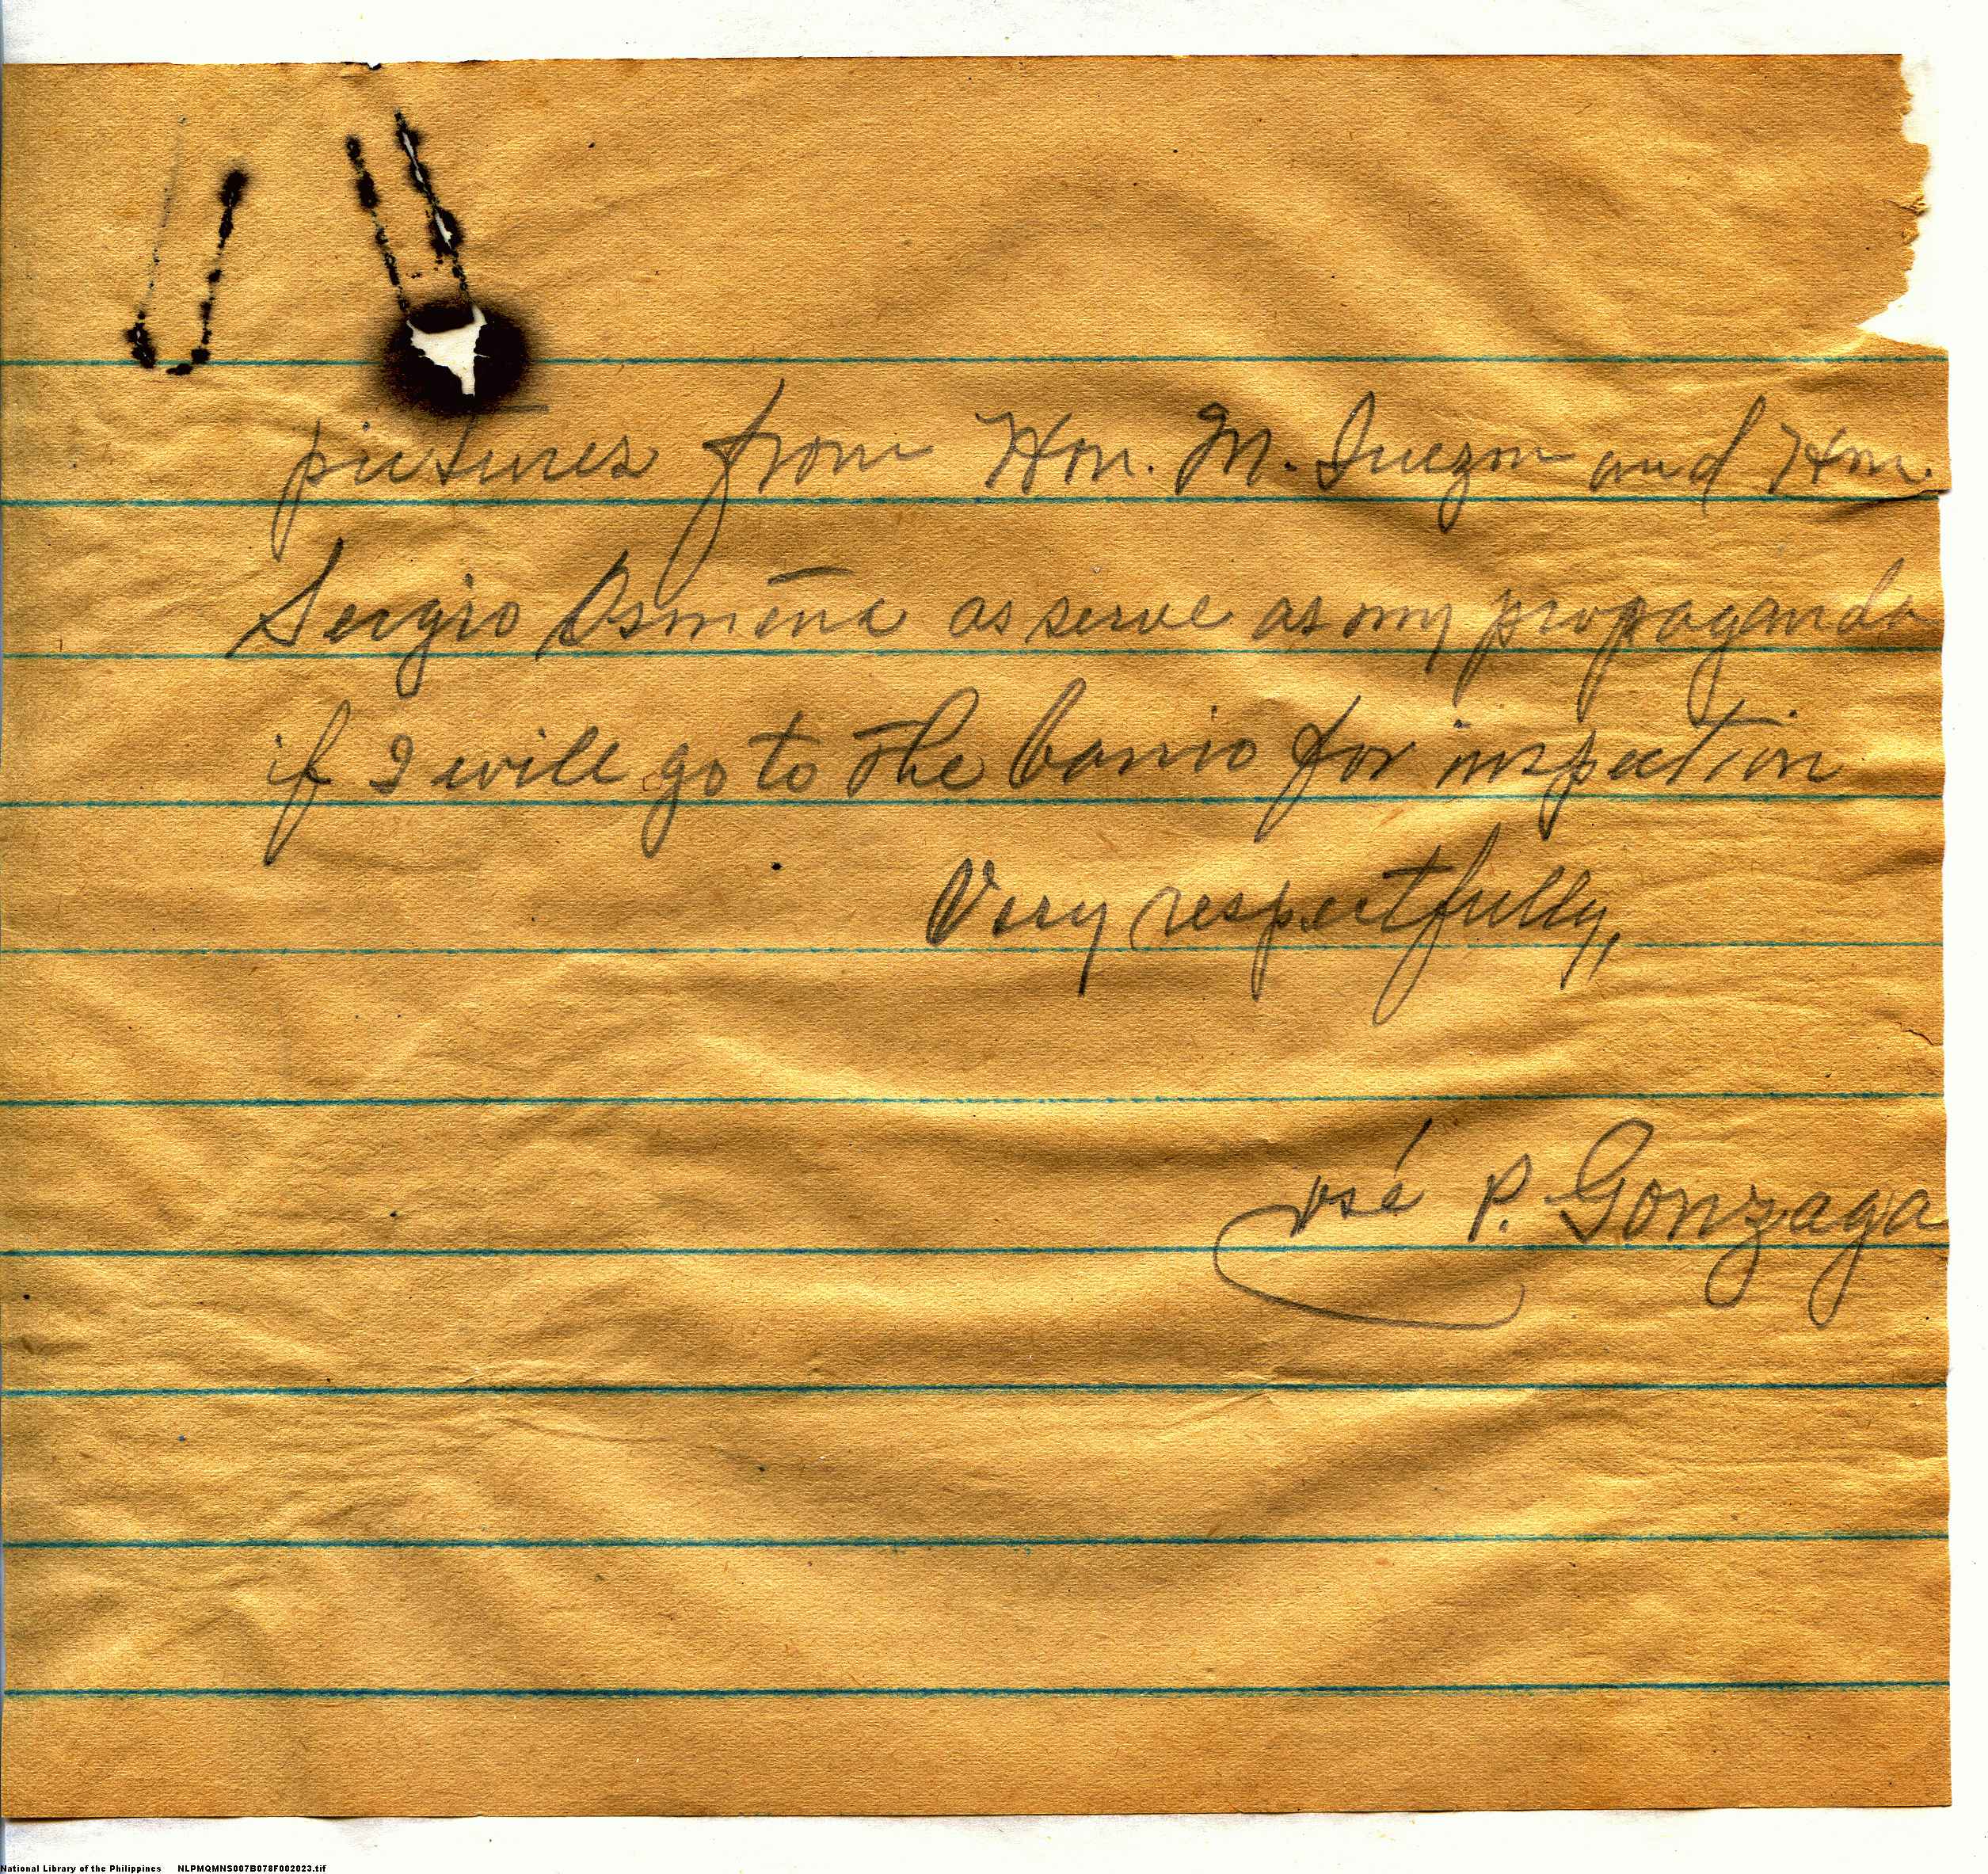 pictures from Hon. M. Quezon and Hon.
Sergio Osmeña as serve as my propaganda
if I will go to the barrio for inspection
Very respectfully,
José P. Gonzaga
National Library of the Philippines NLPMQMNS007B078F002023.tif